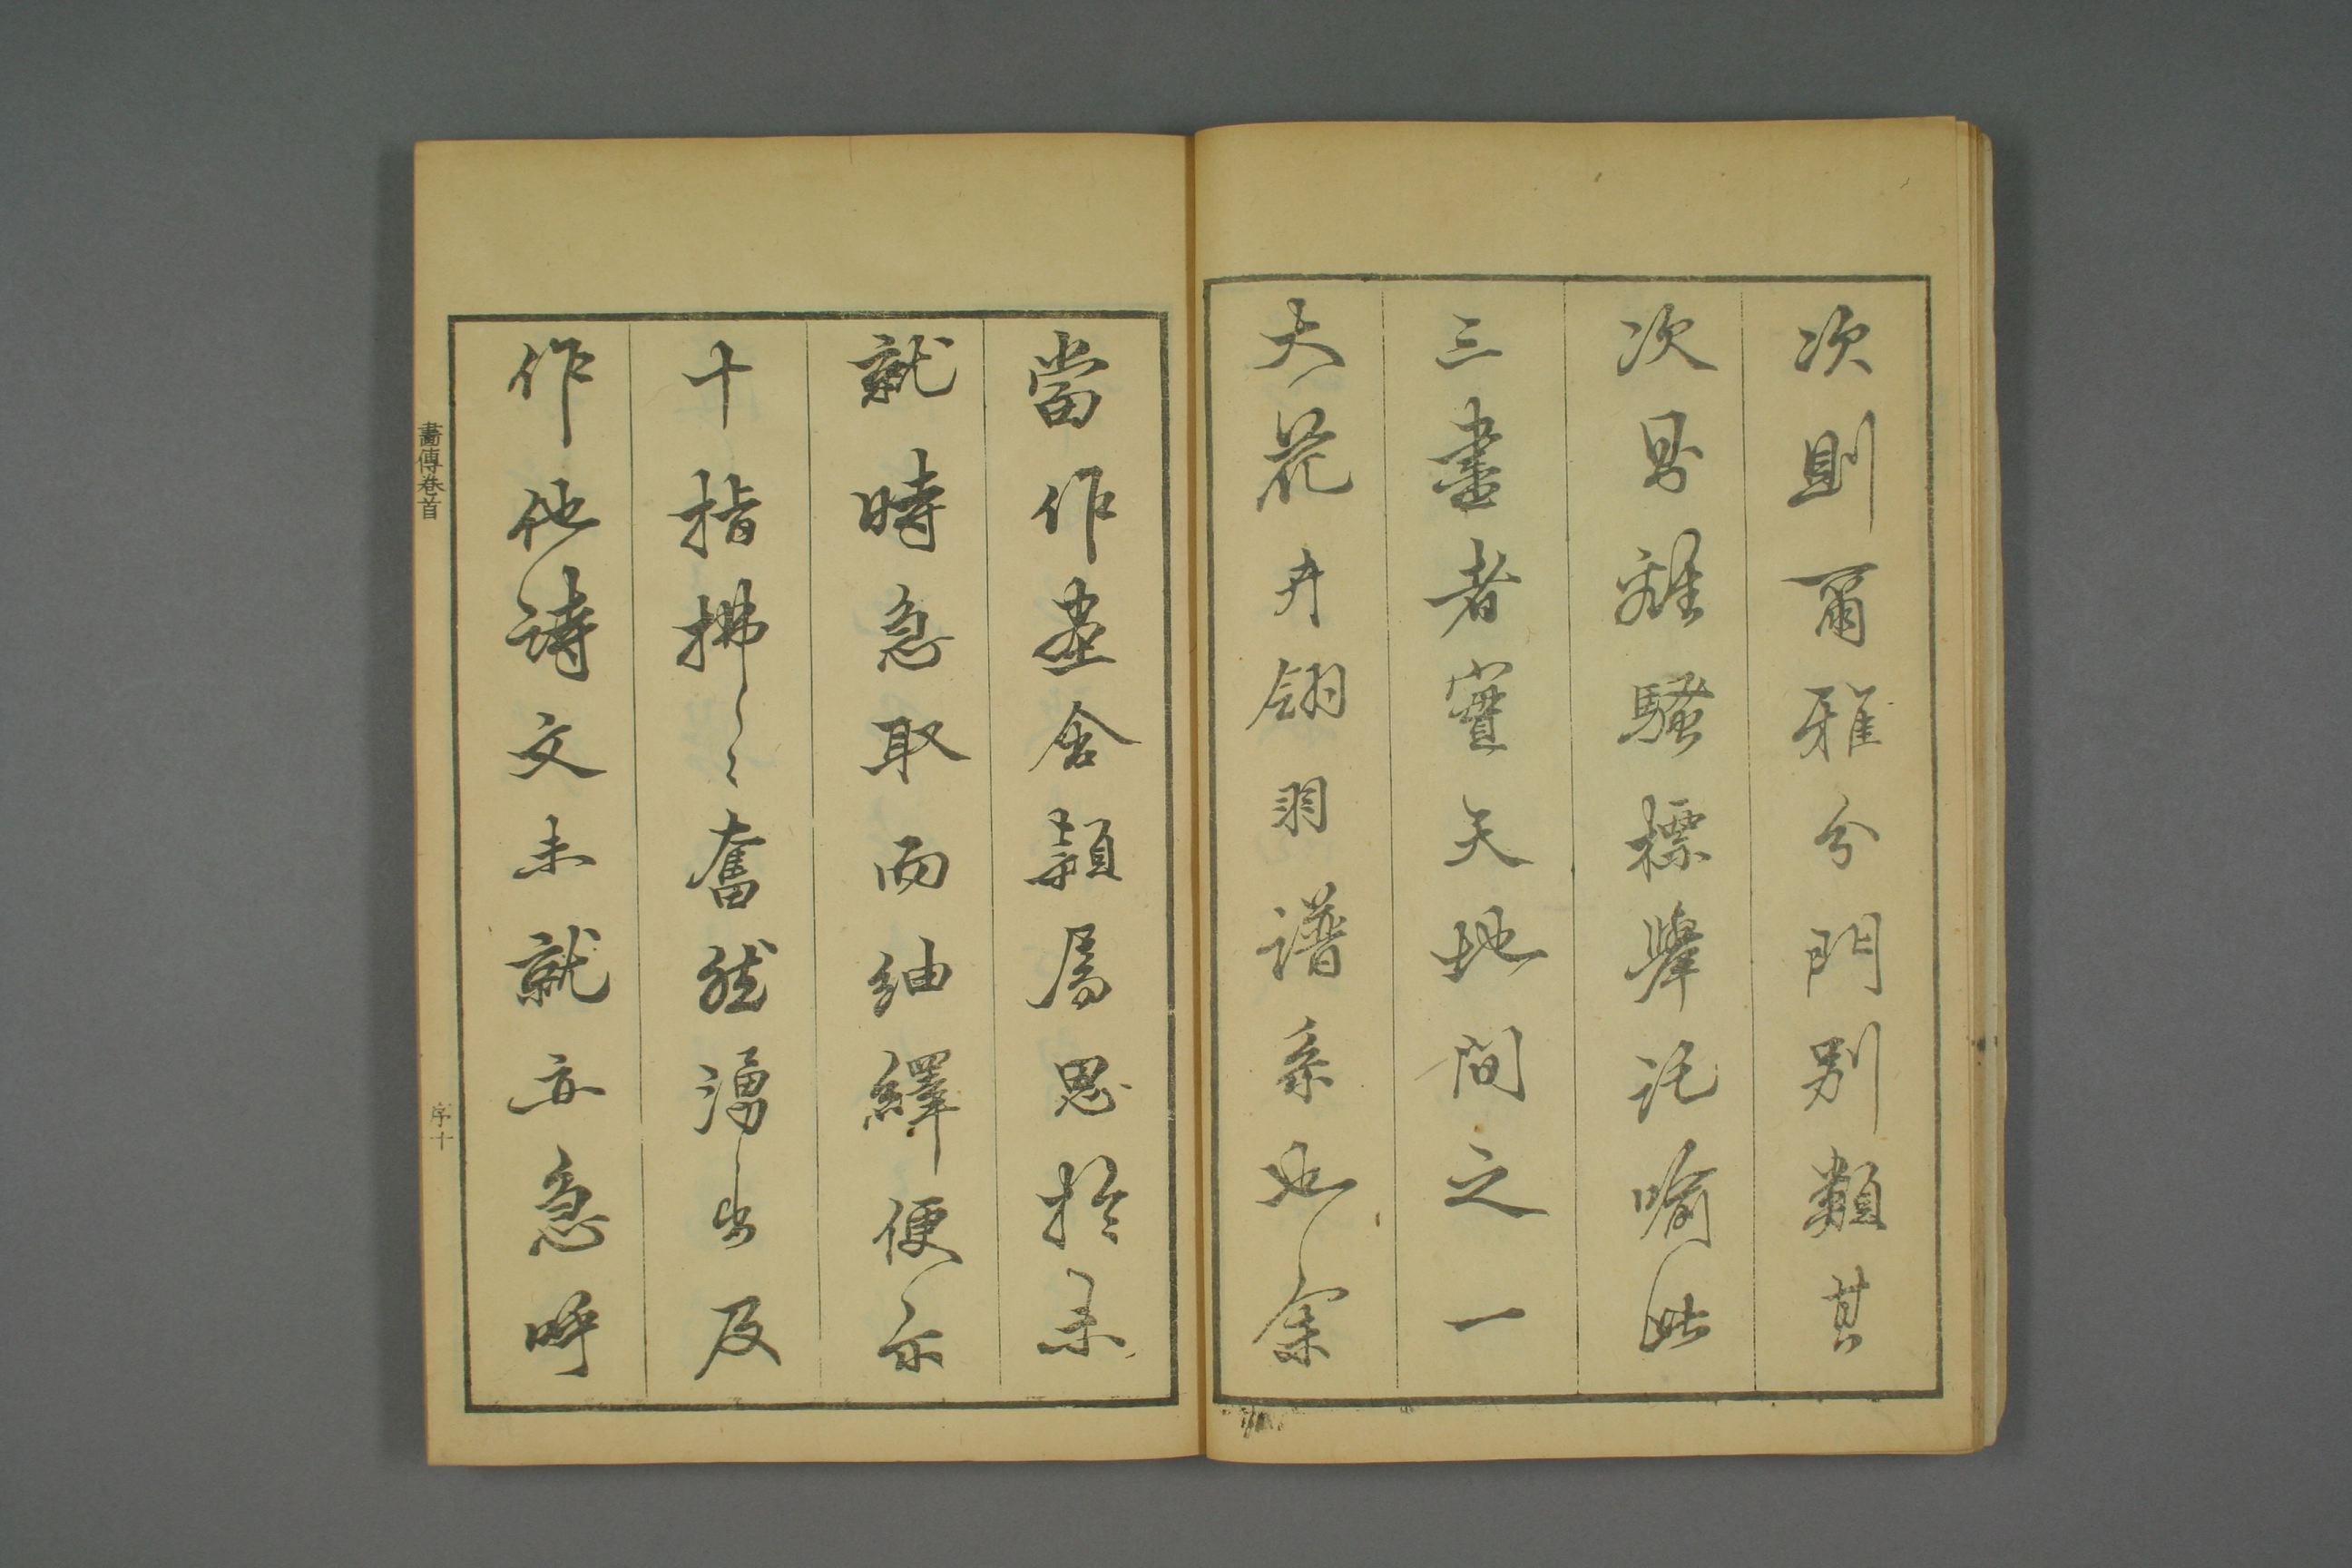 次則爾雅分門別類其
次曷離騷標舉託喻此
三書者實天地間之一
大花卉翎羽譜系也余
當作畫含穎屬思於未
就時急取而紬繹便示
十指拂〻奮然湧出及
作他詩文未就亦急呼
畫傳卷首
序十